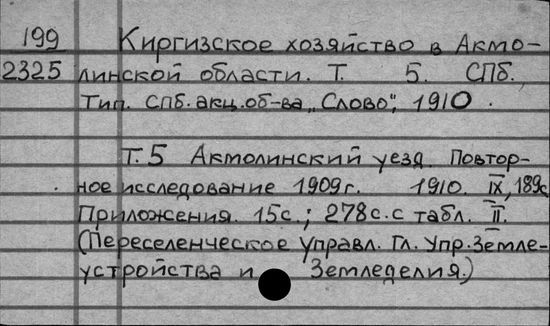 199 Киргизское хозяйство в Акмо-
2325 линской области. Т. 5. СПб.
Тип. СПб. акц. об-ва „Слово“, 1910.
Т.5 Акмолинский уезд. Повтор-
ное исследование 1909г. 1910. IX, 189с.
Приложения. 15с.; 278с. с табл. II.
(Переселенческое управл. Гл. Упр. Земле-
устройства и Земледелия.)